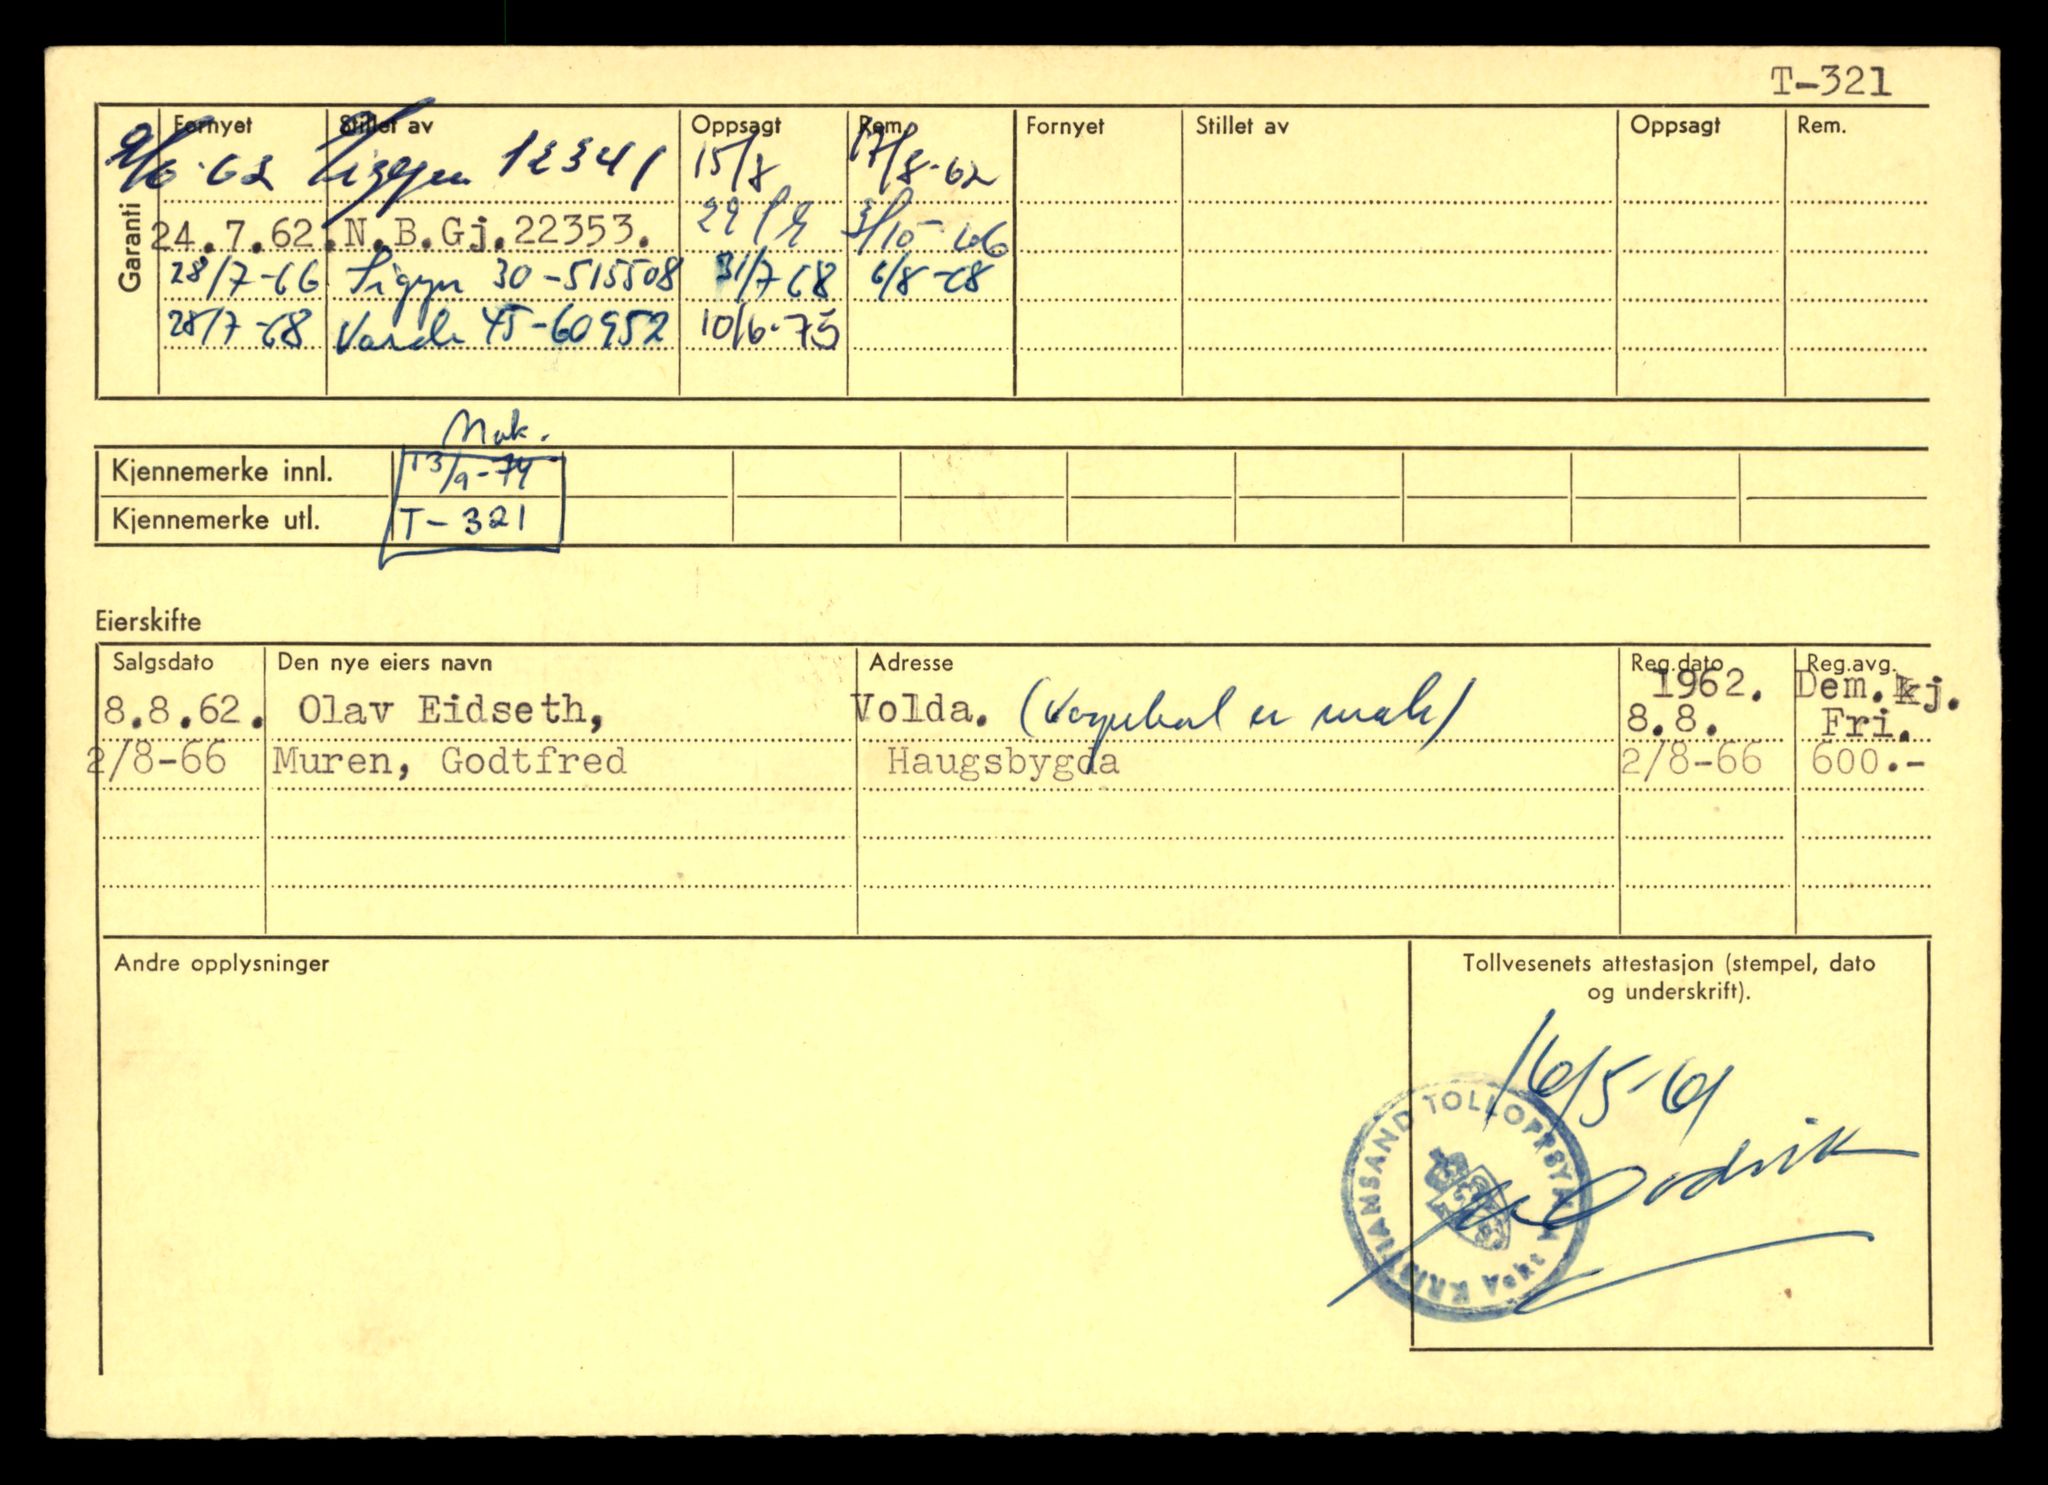 T-321
Fornyet Stillet av Oppsagt Rem. Fornyet Stillet av Oppsagt Rem.
Garanti
9/6-62 12341 15/8 17/8-62
24.7.62. N.B.Gj.22353. 3/10-66
28/7-66 Sigyn 30-515508 31/7 68 6/8-68
28/7-68 Varde 45-60952 10/6-75
Mak.
Kjennemerke innl. 13/9-74
Kjennemerke utl. T-321
Eierskifte
Salgsdato Den nye eiers navn Adresse Reg.dato Reg.avg.
1962. Dem.kj.
8.8.62. Olav Eidseth, Volda. (Vognkort er mak) 8.8. Fri.
2/8-66 Muren, Godtfred Haugsbygda 2/8-66 600.-
Andre opplysninger
Tollvesenets attestasjon (stempel, dato
og underskrift).
16/5-61
KRISTIANSAND TOLLOPPSYN